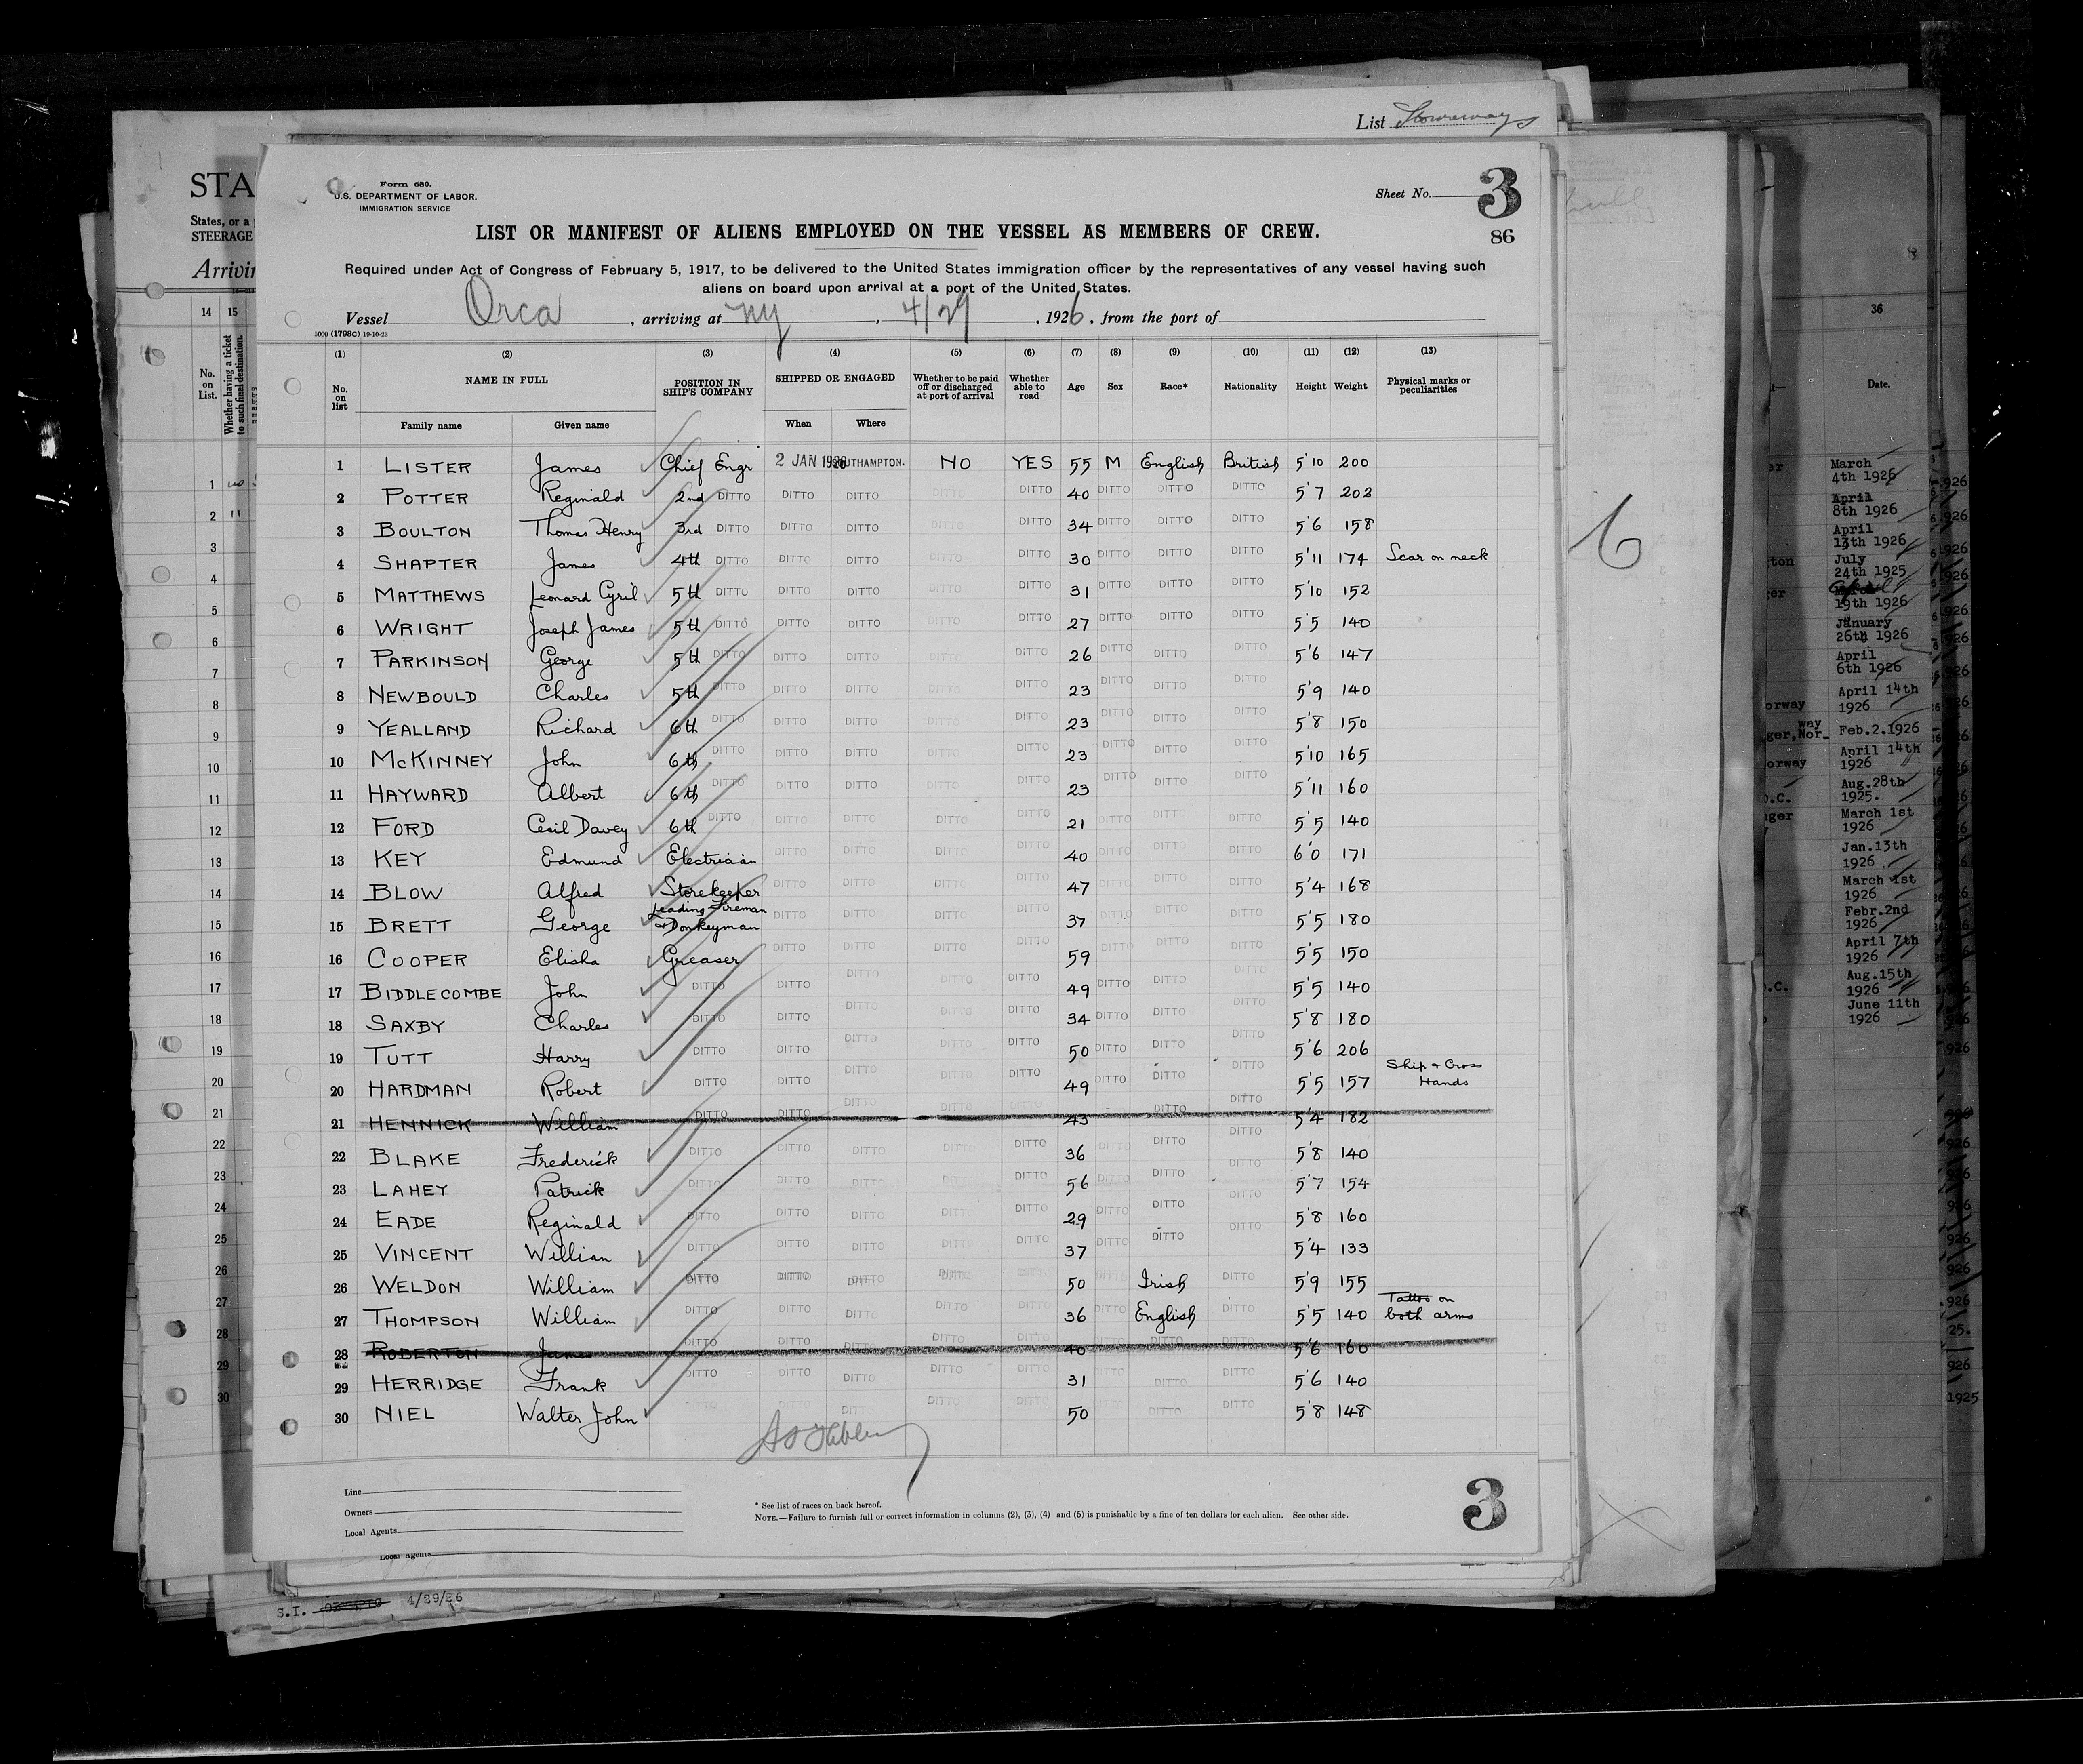 List Stowaways
STA
States, or a
STEERAGE
Arrivin
Form 680.
U.S. DEPARTMENT OF LABOR.
IMMIGRATION SERVICE
Sheet No. 3
86
LIST OR MANIFEST OF ALIENS EMPLOYED ON THE VESSEL AS MEMBERS OF CREW.
Required under Act of Congress of February 5, 1917, to be delivered to the United States immigration officer by the representatives of any vessel having such
aliens on board upon arrival at a port of the United States.
Vessel Orca, arriving at NY, 4/29, 1926, from the port of
5000 (1798C) 19-10-23
(1) (2) (3) (4) (5) (6) (7) (8) (9) (10) (11) (12) (13)
No. on list NAME IN FULL POSITION IN SHIP'S COMPANY SHIPPED OR ENGAGED Whether to be paid off or discharged at port of arrival Whether able to read Age Sex Race* Nationality Height Weight Physical marks or peculiarities
Family name Given name When Where
1 LISTER James Chief Engr 2 JAN 1926 SOUTHAMPTON. NO YES 55 M English British 5'10 200
2 POTTER Reginald 2nd DITTO DITTO DITTO DITTO DITTO 40 DITTO DITTO DITTO 5'7 202
3 BOULTON Thomas Henry 3rd DITTO DITTO DITTO DITTO DITTO 34 DITTO DITTO DITTO 5'6 158
4 SHAPTER James 4th DITTO DITTO DITTO DITTO DITTO 30 DITTO DITTO DITTO 5'11 174 Scar on neck
5 MATTHEWS Leonard Cyril 5th DITTO DITTO DITTO DITTO DITTO 31 DITTO DITTO DITTO 5'10 152
6 WRIGHT Joseph James 5th DITTO DITTO DITTO DITTO DITTO 27 DITTO DITTO DITTO 5'5 140
7 PARKINSON George 5th DITTO DITTO DITTO DITTO DITTO 26 DITTO DITTO DITTO 5'6 147
8 NEWBOULD Charles 5th DITTO DITTO DITTO DITTO DITTO 23 DITTO DITTO DITTO 5'9 140
9 YEALLAND Richard 6th DITTO DITTO DITTO DITTO DITTO 23 DITTO DITTO DITTO 5'8 150
10 McKINNEY John 6th DITTO DITTO DITTO DITTO DITTO 23 DITTO DITTO DITTO 5'10 165
11 HAYWARD Albert 6th DITTO DITTO DITTO DITTO DITTO 23 DITTO DITTO DITTO 5'11 160
12 FORD Cecil Davey 6th DITTO DITTO DITTO DITTO DITTO 21 DITTO DITTO DITTO 5'5 140
13 KEY Edmund Electrician DITTO DITTO DITTO DITTO 40 DITTO DITTO DITTO 6'0 171
14 BLOW Alfred Storekeeper DITTO DITTO DITTO DITTO 47 DITTO DITTO DITTO 5'4 168
15 BRETT George Leading Fireman & Donkeyman DITTO DITTO DITTO DITTO 37 DITTO DITTO DITTO 5'5 180
16 COOPER Elisha Greaser DITTO DITTO DITTO DITTO 59 DITTO DITTO DITTO 5'5 150
17 BIDDLECOMBE John DITTO DITTO DITTO DITTO DITTO 49 DITTO DITTO DITTO 5'5 140
18 SAXBY Charles DITTO DITTO DITTO DITTO DITTO 34 DITTO DITTO DITTO 5'8 180
19 TUTT Harry DITTO DITTO DITTO DITTO DITTO 50 DITTO DITTO DITTO 5'6 206
20 HARDMAN Robert DITTO DITTO DITTO DITTO DITTO 49 DITTO DITTO DITTO 5'5 157 Ship & Cross Hands
21 HENNICK William DITTO DITTO DITTO DITTO DITTO 43 DITTO DITTO 5'4 182
22 BLAKE Frederick DITTO DITTO DITTO DITTO DITTO 36 DITTO DITTO DITTO 5'8 140
23 LAHEY Patrick DITTO DITTO DITTO DITTO DITTO 56 DITTO DITTO DITTO 5'7 154
24 EADE Reginald DITTO DITTO DITTO DITTO DITTO 29 DITTO DITTO DITTO 5'8 160
25 VINCENT William DITTO DITTO DITTO DITTO DITTO 37 DITTO DITTO DITTO 5'4 133
26 WELDON William DITTO DITTO DITTO DITTO DITTO 50 DITTO Irish DITTO 5'9 155
27 THOMPSON William DITTO DITTO DITTO DITTO DITTO 36 DITTO English DITTO 5'5 140 Tattoo on both arms
28 ROBERTON James DITTO DITTO DITTO DITTO DITTO 40 DITTO DITTO DITTO 5'6 160
29 HERRIDGE Frank DITTO DITTO DITTO DITTO DITTO 31 DITTO DITTO 5'6 140
30 NIEL Walter John DITTO DITTO DITTO DITTO DITTO 50 DITTO DITTO 5'8 148
Line
Owners
Local Agents
* See list of races on back hereof.
NOTE.—Failure to furnish full or correct information in columns (2), (3), (4) and (5) is punishable by a fine of ten dollars for each alien. See other side.
3
Local Agents
S.I. 4/29/26
14 15
No. on List.
Whether having a ticket to such final destination.
6
36
Date.
March 4th 1926
April 8th 1926
April 13th 1926
July 24th 1925
19th 1926
January 26th 1926
April 6th 1926
April 14th 1926
Feb.2.1926
April 14th 1926
Aug.28th 1925.
March 1st 1926
Jan.13th 1926
March 1st 1926
Febr.2nd 1926
April 7th 1926
Aug.15th 1926
June 11th 1926